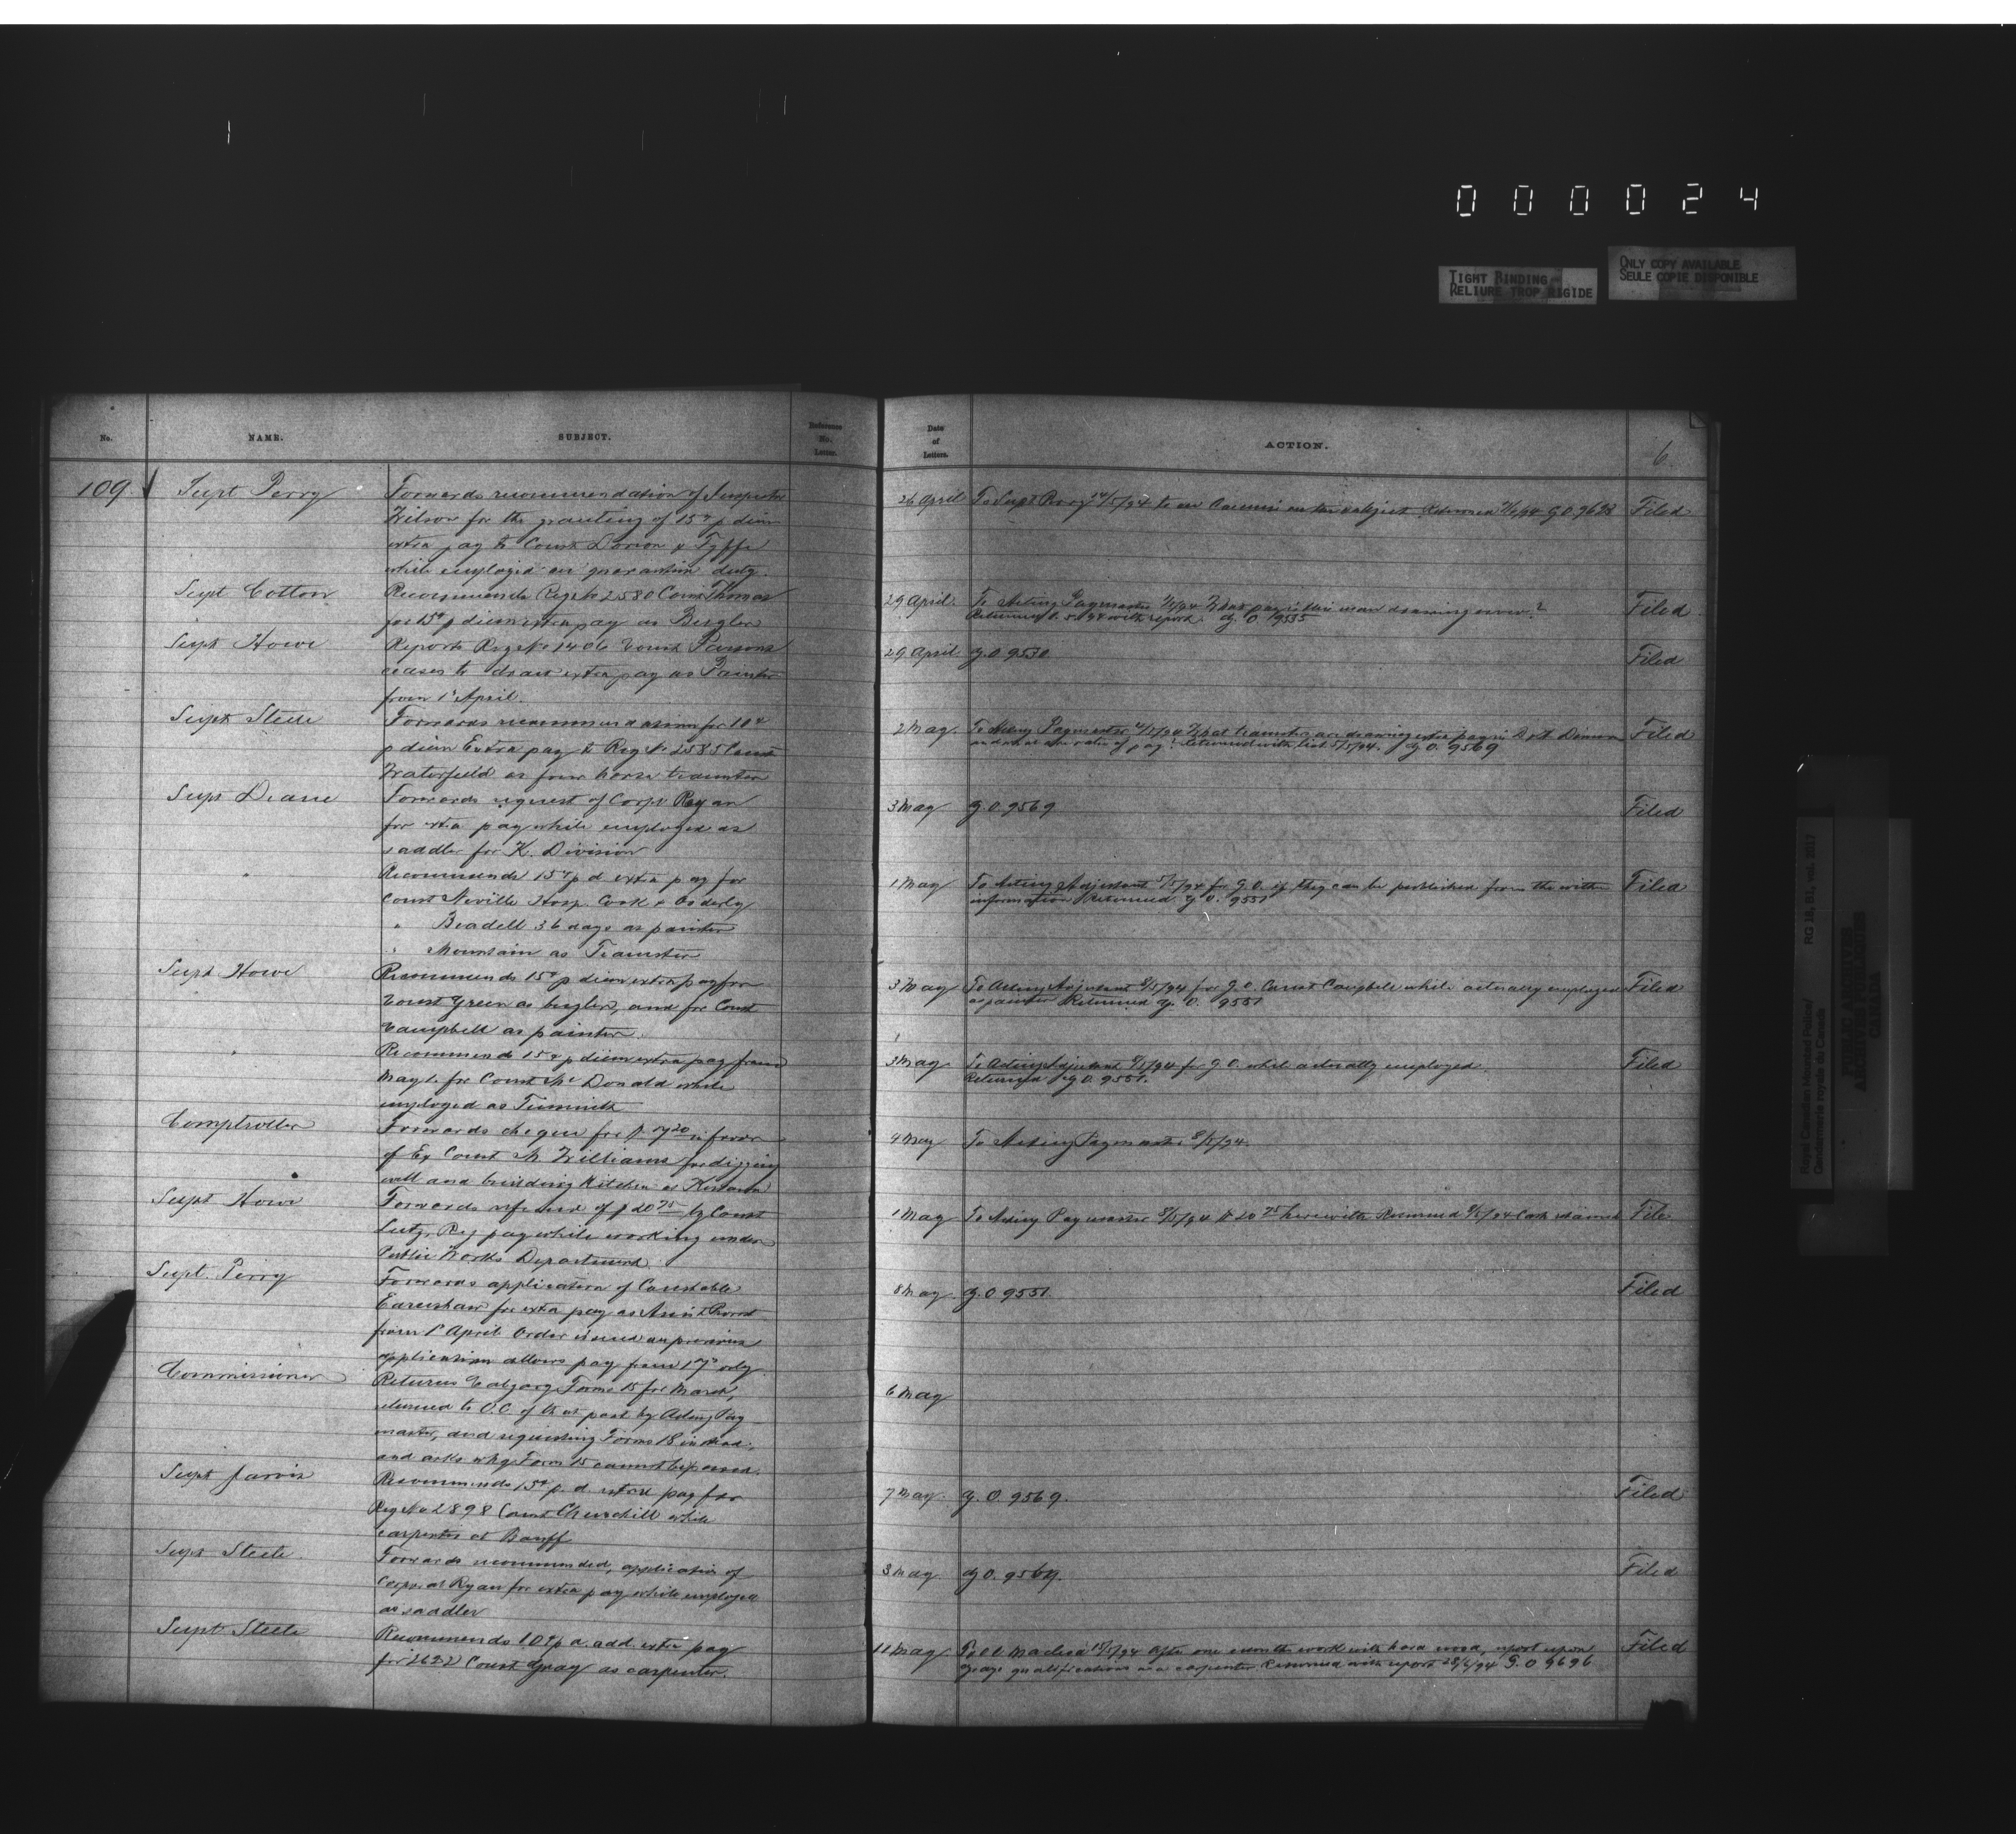 000024
TIGHT BINDING
RELIURE TROP RIGIDE
ONLY COPY AVAILABLE
SEULE COPIE DISPONIBLE
No.
NAME.
SUBJECT.
Reference
No.
Letter.
Date
of
Letters.
ACTION.
6
109
Supt Perry
Forwards recommendation of Inspector
Wilson for the granting of 15¢ p diem
extra pay to Const Dorion & Fyffe
while employed on quarantine duty.
26 April
To Supt Perry 14/5/94 to on the subject Returned G.O. 9628
Filed
Supt Cotton
Recommends Reg No 2580 Const Thomas
for 15¢ p diem extra pay as Bugler
29 April
To Acting Paymaster What pay is this man drawing now?
Returned with report. G.O. 9535
Filed
Supt Howe
Reports Reg No 1406 Const Parsons
ceases to draw extra pay as Painter
from 1st April.
29 April
G.O. 9530
Filed
Supt Steele
Forwards recommendation for 10¢
p diem Extra pay to Reg No 2585 Const
Waterfield as four horse teamster
2 May
To Acting Paymaster What teamsters are drawing extra pay in D Division
and what are rates of pay? Returned with list 5/5/94. G.O. 9569
Filed
Supt Deane
Forwards request of Corpl Ryan
for extra pay while employed as
saddler for K. Division
3 May
G.O. 9569
Filed
"
Recommends 15¢ p d extra pay for
Const Neville Hosp. Cook & Orderly
" Beadell 36 days as painter
" Mountain as Teamster
1 May
To Acting Adjutant 5/5/94 for G.O. if they can be published from the within
information Returned G.O. 9551
Filed
Supt Howe
Recommends 15¢ p diem extra pay for
Const Green as bugler, and for Const
Campbell as painter.
3 May
To Acting Adjutant 8/5/94 for G.O. Const Campbell while actually employed
as painter Returned G.O. 9551
Filed
"
Recommends 15¢ p diem extra pay from
May 1. for Const McDonald while
employed as Tinsmith
3 May
To Acting Adjutant 8/5/94 for G.O. while actually employed.
Returned G.O. 9551.
Filed
Comptroller
Forwards cheque for $ in favor
of Ex Const M. Williams for digging
well and building Kitchen at
4 May
To Acting Paymaster 8/5/94.
Supt Howe
Forwards refund of $20.75 by Const
Lutz, Reg pay while working under
Public Works Department.
1 May
To Acting Paymaster 8/5/94 $20.75 herewith Returned
File
Supt. Perry
Forwards application of Constable
Earnshaw for extra pay as Assist Provost
from 1st April Order issued on previous
application allows pay from 17th only
8 May
G.O. 9551.
Filed
Commissioner
Returns Calgary Forms 15 for March,
returned to O.C. of that post by Acting Pay
master, and requesting Forms 18 instead;
and asks why Form 15 cannot be passed.
6 May
Supt Jarvis
Recommends 15¢ p. d. extra pay for
Reg No 2898 Const Churchill while
carpenter at Banff
7 May.
G.O. 9569.
Filed
Supt Steele
Forwards recommended, application of
Corporal Ryan for extra pay while employed
as saddler
8 May
G.O. 9569.
Filed
Supt Steele
Recommends 10¢ p d. add. extra pay
for 2622 Const Gray as carpenter.
11 May
To O.C. Macleod 15/5/94 After one month's work with hard wood, report upon
Gray's qualifications as a carpenter. Returned with report 28/6/94 G.O 9696
Filed
Royal Canadian Mounted Police/
Gendarmerie royale du Canada
RG 18, B1, vol. 2017
PUBLIC ARCHIVES
ARCHIVES PUBLIQUES
CANADA